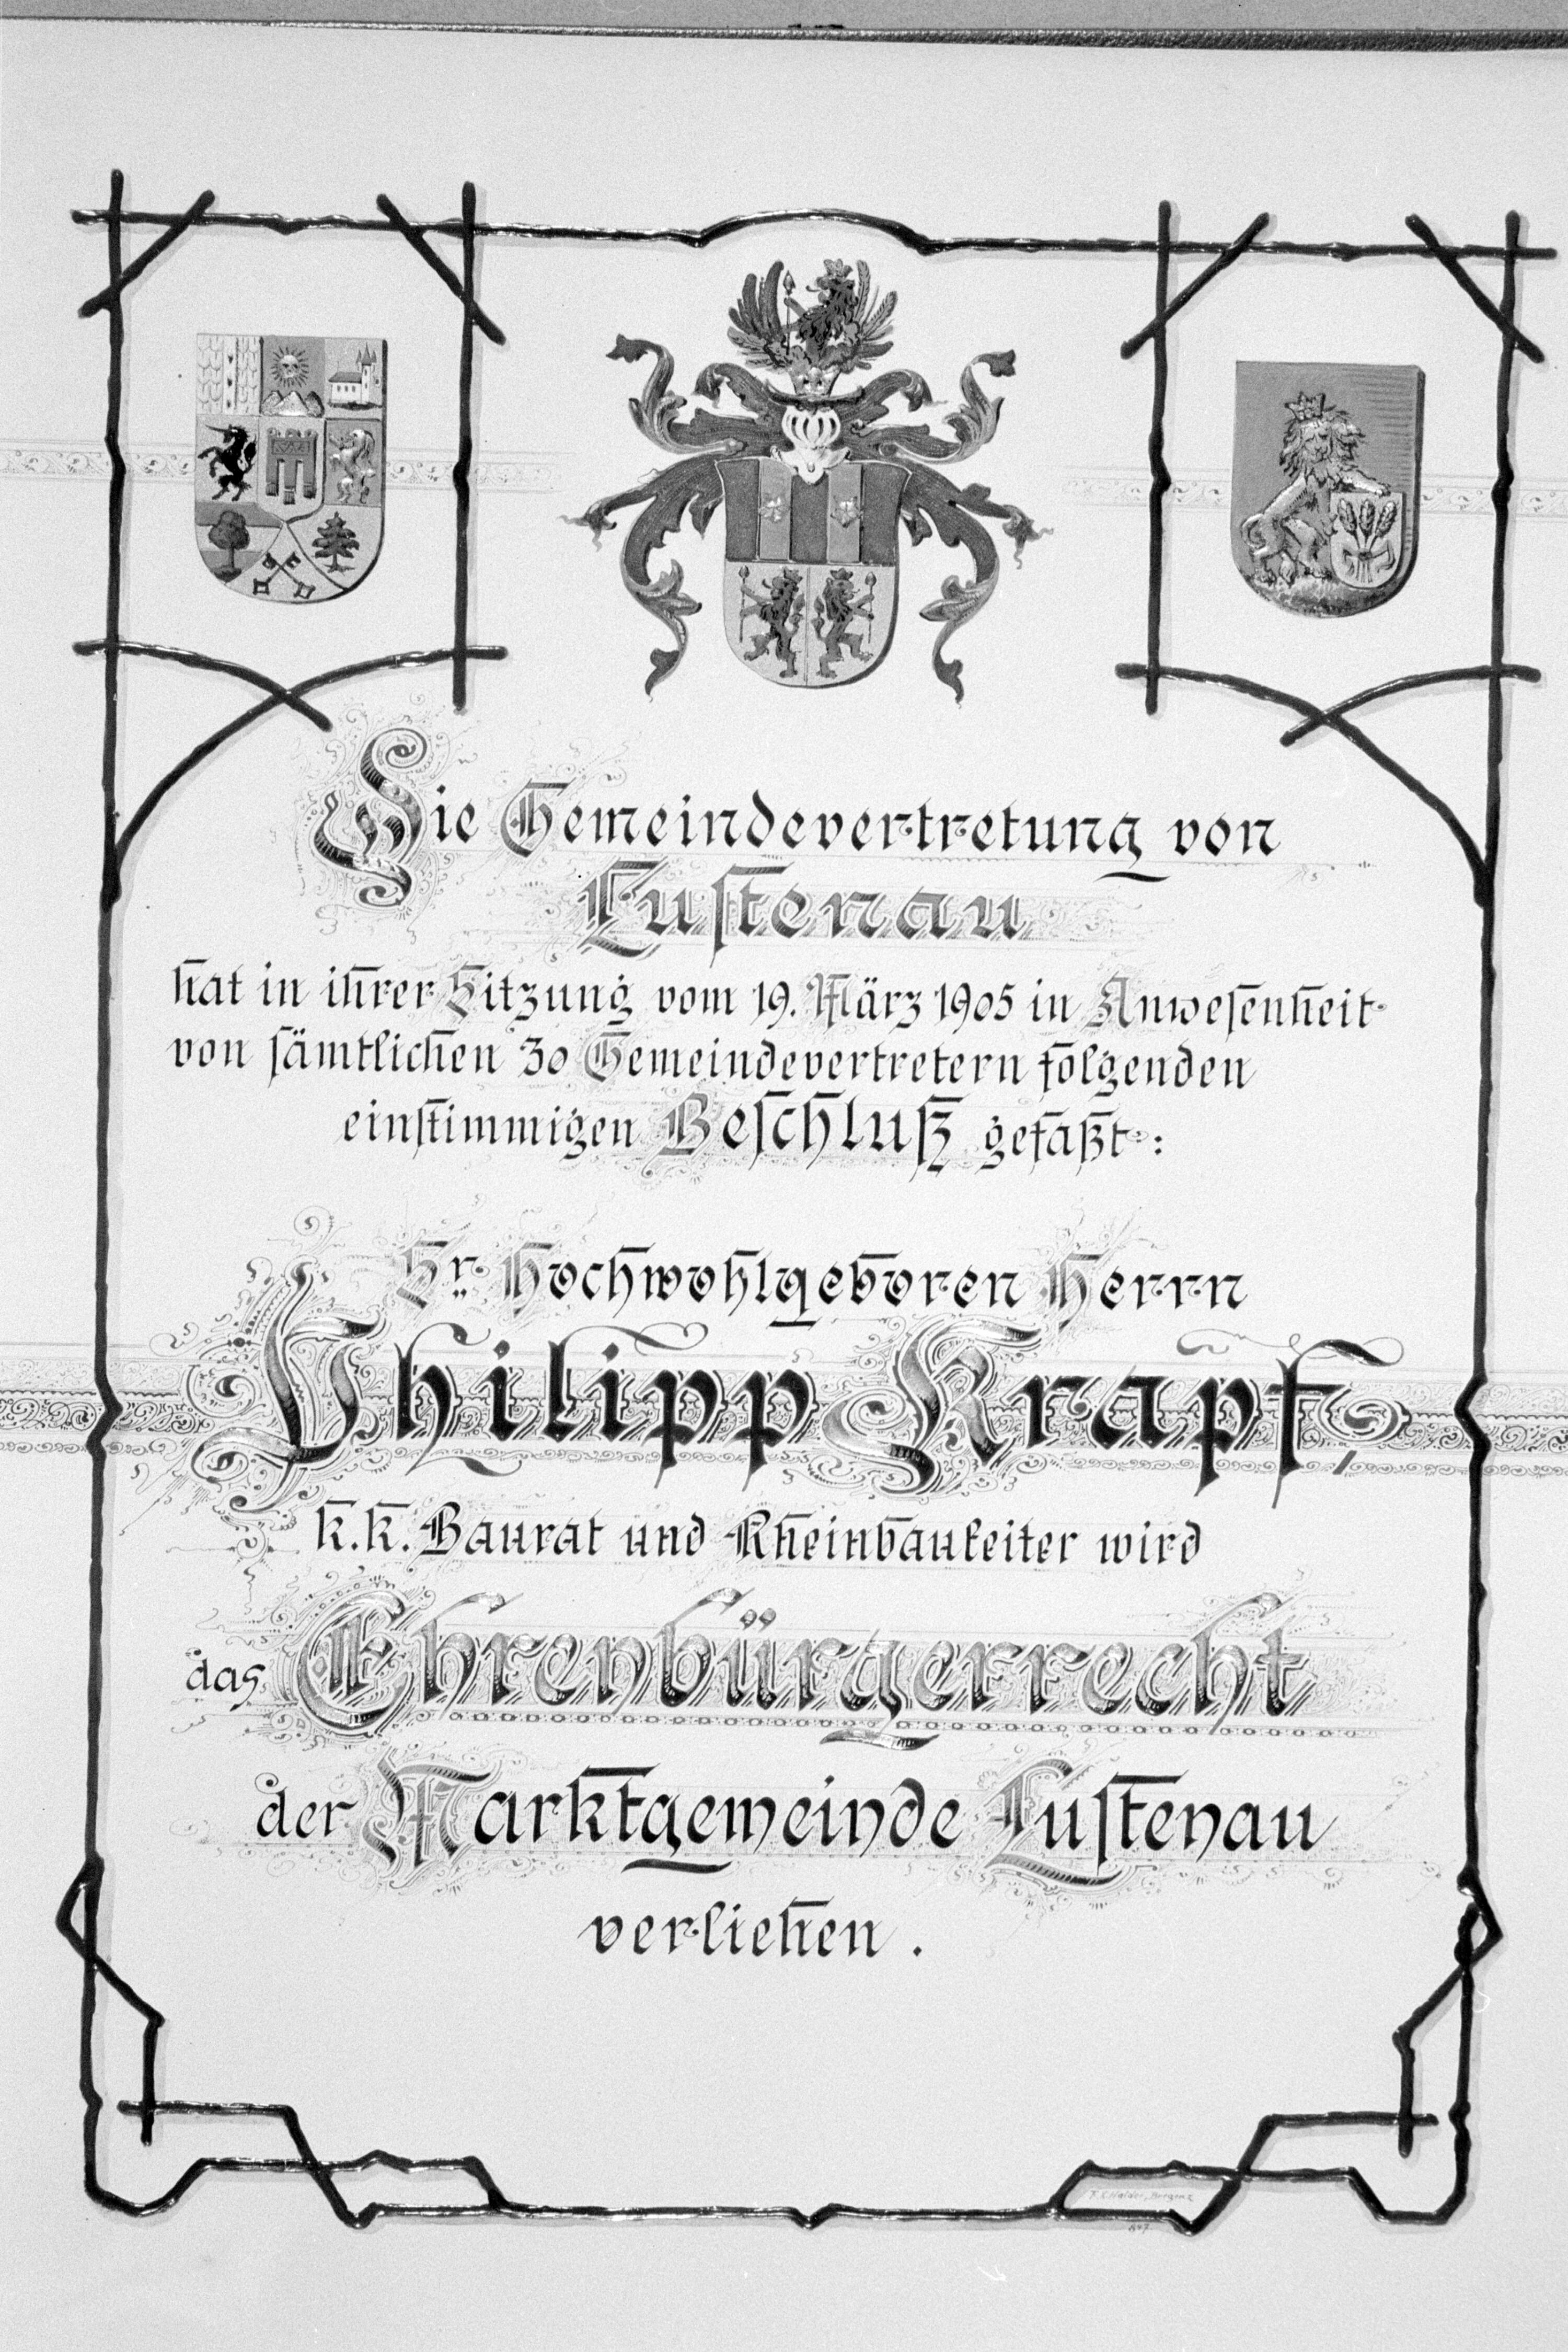 Die Gemeindevertretung von
Lustenau
hat in ihrer Sitzung vom 19. März 1905 in Anwesenheit
von sämtlichen 30 Gemeindevertretern folgenden
einstimmigen Beschluß gefaßt:
Sr. Hochwohlgeboren Herrn
Philipp Krapf,
k.k. Baurat und Rheinbauleiter wird
das Ehrenbürgerrecht
der Marktgemeinde Lustenau
verliehen.
Bregenz